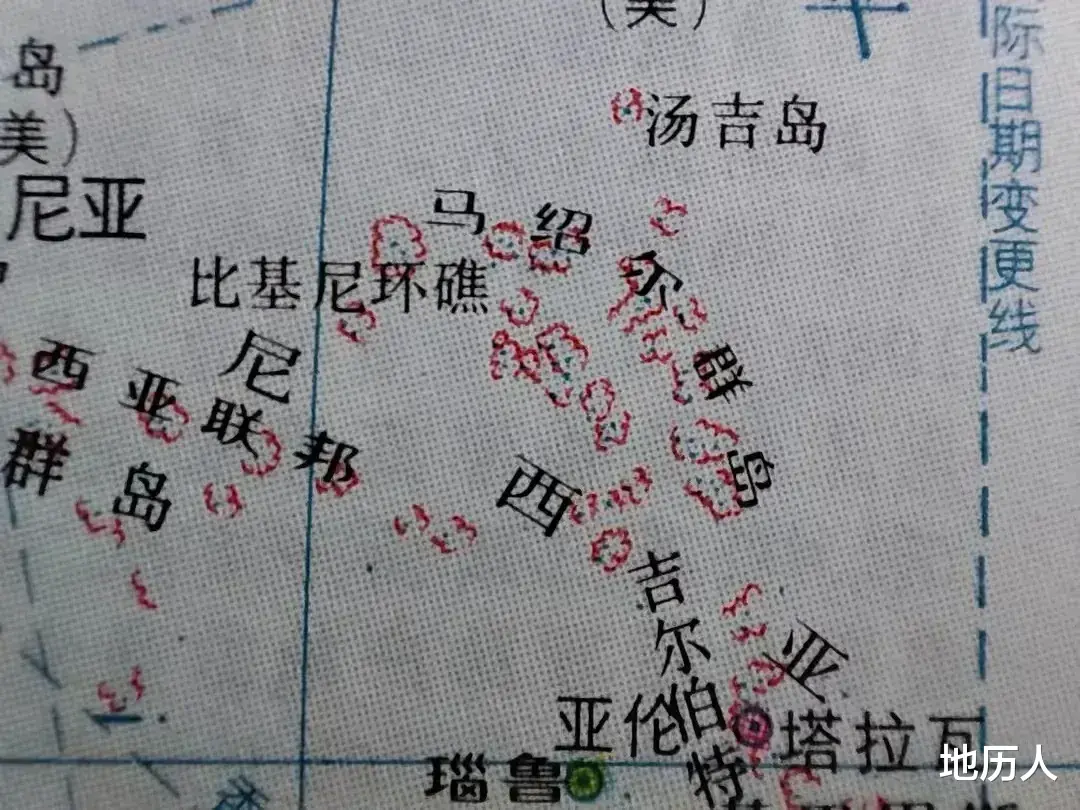 (美)
际日期变更线
岛
(美)
汤吉岛
尼亚
马绍尔群岛
比基尼环礁
西亚联邦
尼西亚
群岛
吉尔伯特
亚伦
塔拉瓦
瑙鲁
地历人